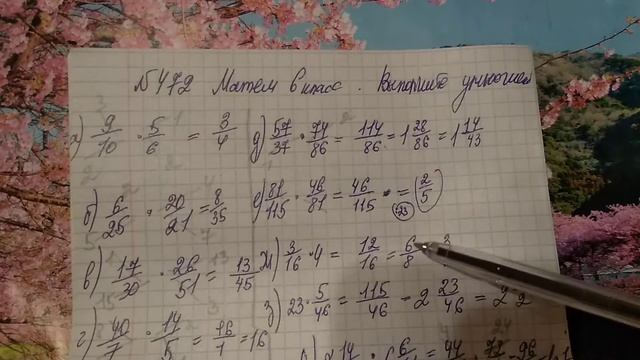 №472 Матем 6 класс. Выполните умножение
а) 9/10 · 5/6 = 3/4
д) 57/37 · 74/86 = 114/86 = 1 28/86 = 1 14/43
б) 6/25 · 20/21 = 8/35
е) 81/115 · 46/81 = 46/115 = (2/5)
:23
в) 17/30 · 26/51 = 13/45
ж) 3/16 · 4 = 12/16 = 6/8
з) 23 · 5/46 = 115/46 = 2 23/46 = 2
г) 40/7 · 14/5 = 16/1 = 16